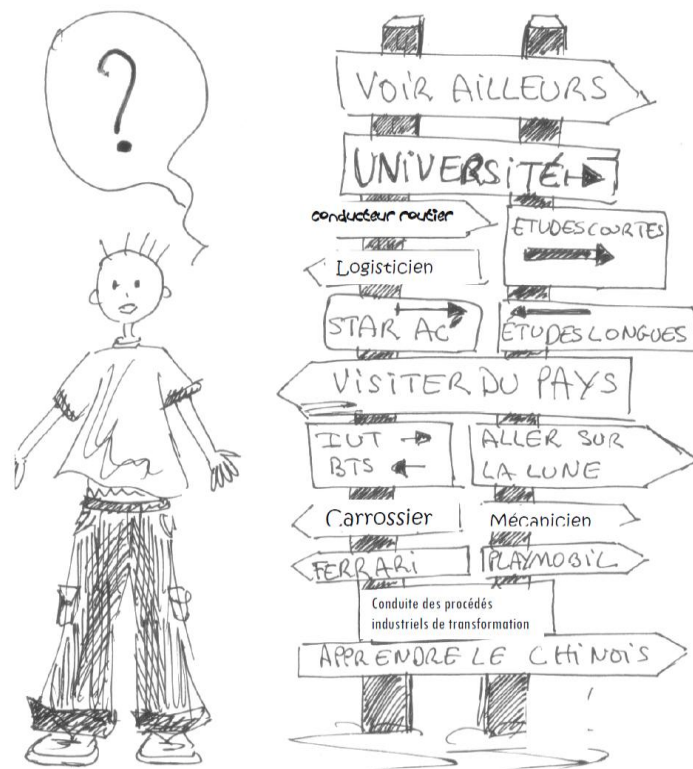 ?
VOIR AILLEURS
UNIVERSITÉ
conducteur routier
ETUDES COURTES
Logisticien
STAR AC'
ÉTUDES LONGUES
VISITER DU PAYS
IUT
BTS
ALLER SUR
LA LUNE
Carrossier
Mécanicien
FERRARI
PLAYMOBIL
Conduite des procédés
industriels de transformation
APPRENDRE LE CHINOIS